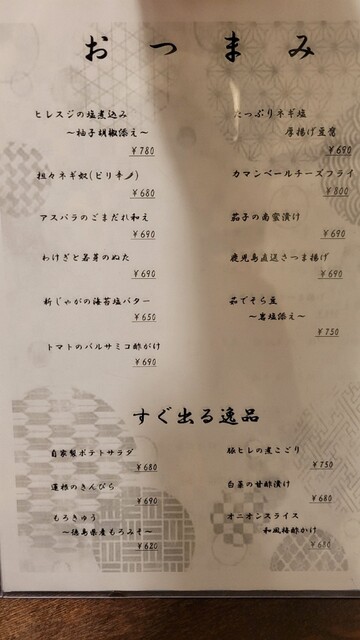 おつまみ
ヒレスジの塩煮込み
～柚子胡椒添え～
￥780
担々ネギ奴(ピリ辛♪)
￥680
アスパラのごまだれ和え
￥690
わけぎと若芽のぬた
￥690
新じゃがの海苔塩バター
￥650
トマトのバルサミコ酢がけ
￥690
たっぷりネギ塩
厚揚げ豆腐
￥690
カマンベールチーズフライ
￥800
茄子の南蛮漬け
￥690
鹿児島直送さつま揚げ
￥690
茹でそら豆
～岩塩添え～
￥750
すぐ出る逸品
自家製ポテトサラダ
￥680
蓮根のきんぴら
￥690
もろきゅう
～徳島県産もろみそ～
￥620
豚ヒレの煮こごり
￥750
白菜の甘酢漬け
￥680
オニオンスライス
和風梅酢かけ
￥680